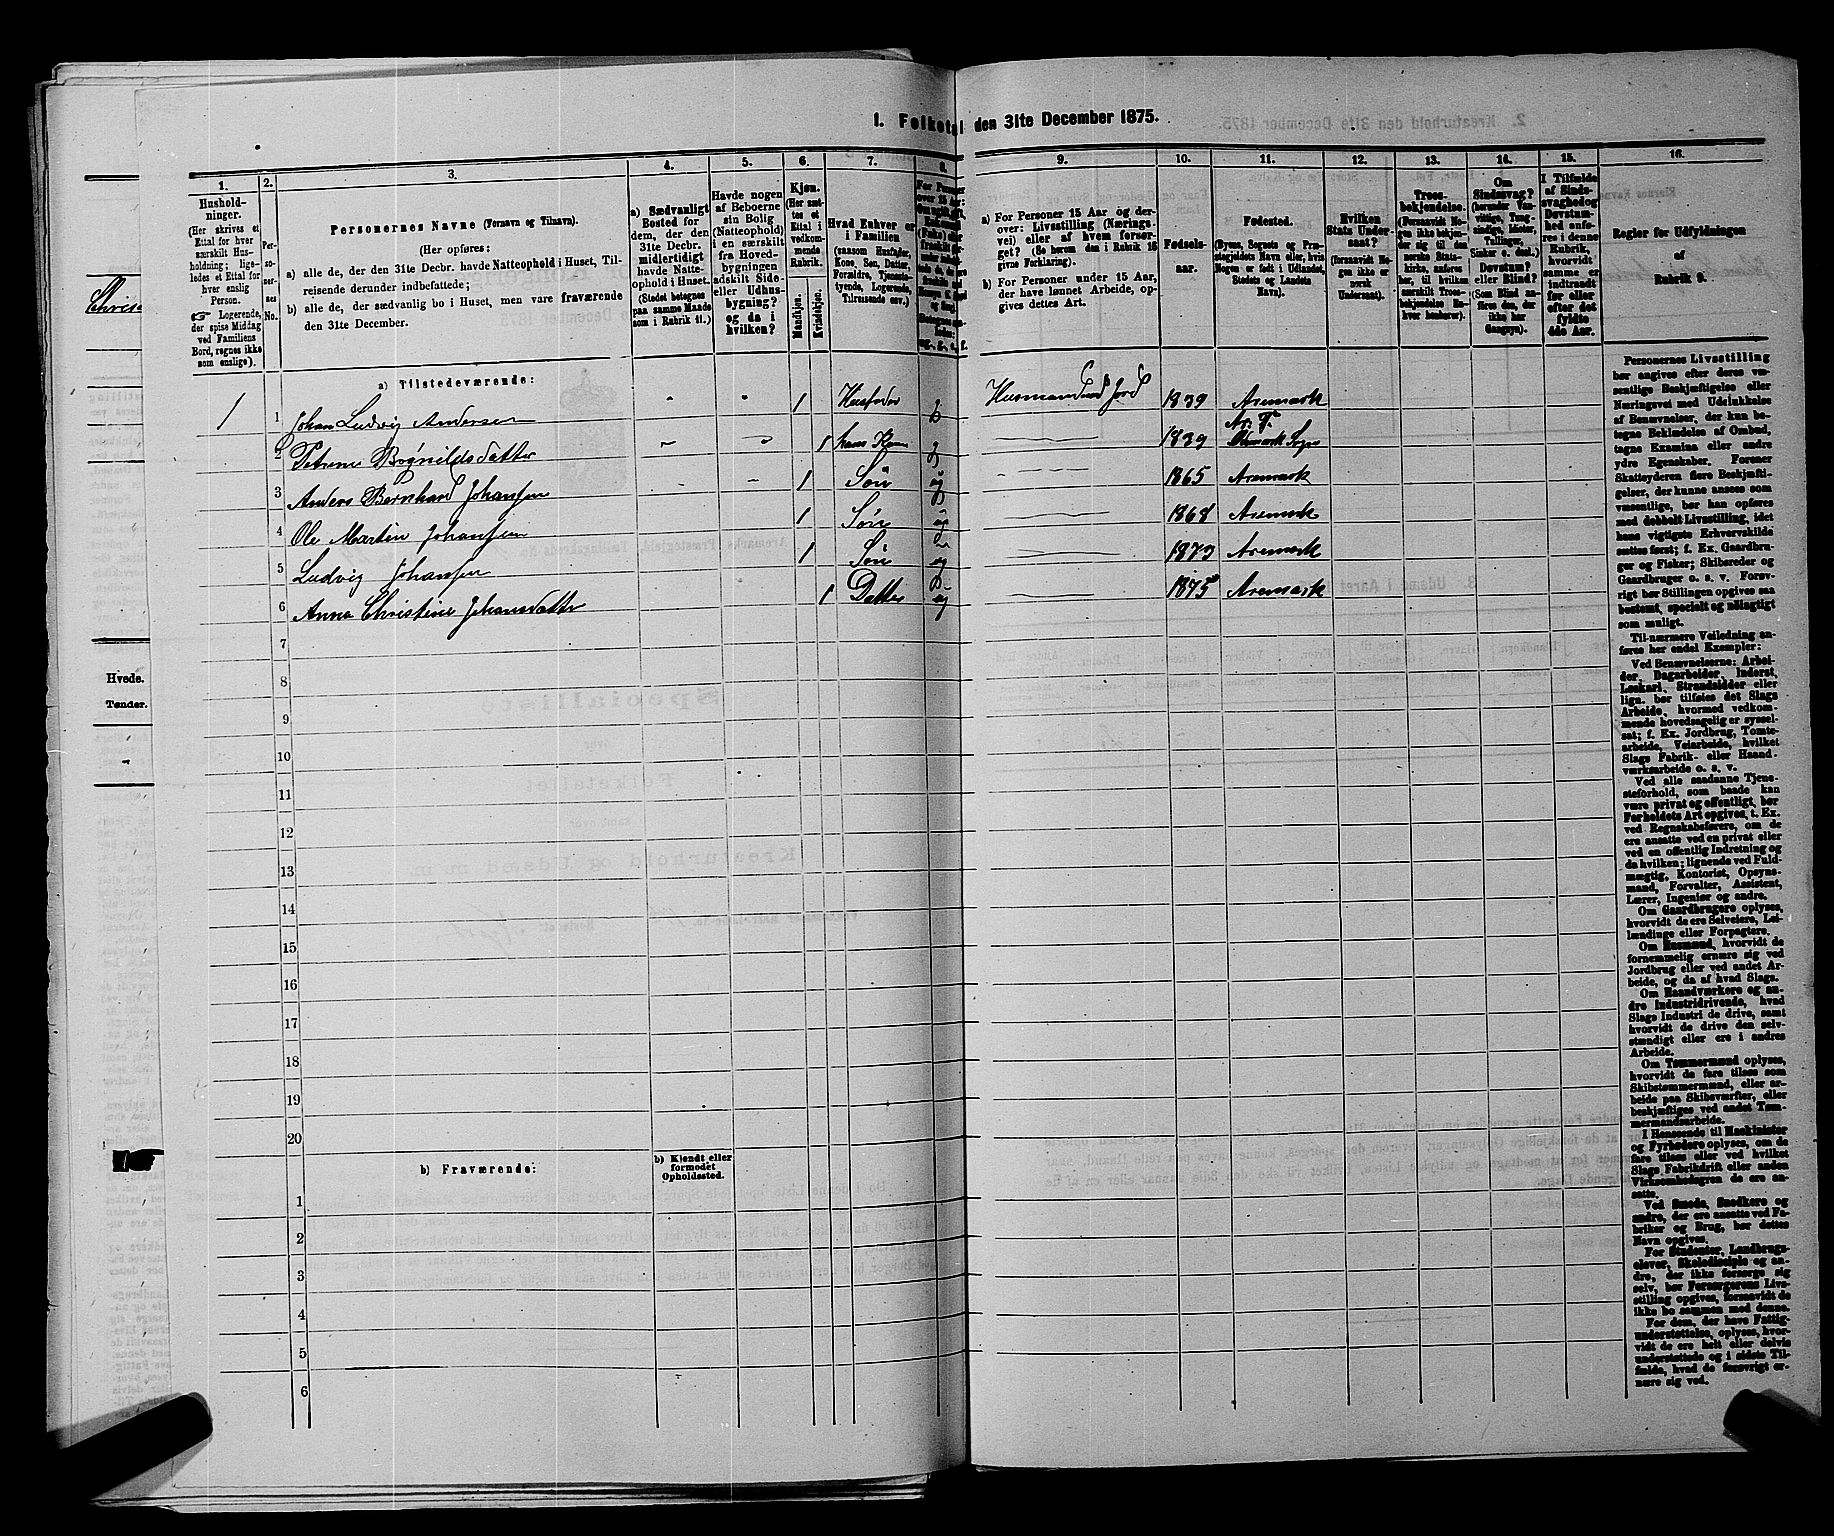 1. Folketal den 31te December 1875.
1.
Husholdninger.
(Her skrives et Ettal for hver særskilt Husholdning; ligeledes et Ettal for hver enslig Person.
☞ Logerende, der spise Middag ved Familiens Bord, regnes ikke som enslige).
2.
Personernes No.
3.
Personernes Navne (Fornavn og Tilnavn).
(Her opføres:
a) alle de, der den 31te Decbr. havde Natteophold i Huset, Tilreisende derunder indbefattede;
b) alle de, der sædvanlig bo i Huset, men vare fraværende den 31te December.
4.
a) Sædvanligt Bosted for dem, der den 31te Decbr. midlertidigt havde Natteophold i Huset.
(Stedet betegnes paa samme Maade som i Rubrik 11.)
5.
Havde nogen af Beboerne sin Bolig (Natteophold) i en særskilt fra Hovedbygningen adskilt Side- eller Udhusbygning? og da i hvilken?
6.
Kjøn.
(Her sættes et Ettal i vedkommende Rubrik.
Mandkjøn.
Kvindekjøn.
7.
Hvad Enhver er i Familien
(saasom Husfader, Kone, Søn, Datter, Forældre, Tjenestetyende, Logerende, Tilreisende osv.)
8.
9.
a) For Personer 15 Aar og derover: Livsstilling (Næringsvei) eller af hvem forsørget? (Se herom den i Rubrik 16 givne Forklaring).
b) For Personer under 15 Aar, der have lønnet Arbeide, opgives dettes Art.
10.
Fødselsaar.
11.
Fødested.
(Byens, Sognets og Præstegjeldets Navn eller, hvis Nogen er født i Udlandet, Stedets og Landets Navn).
12.
Hvilken Stats Undersaat?
(forsaavidt Nogen ikke er norsk Undersaat).
13.
Troesbekjendelse.
(Forsaavidt Nogen ikke bekjender sig til den norske Statskirke, anføres her, til hvilken særskilt Troesbekjendelse Enhver henhører).
14.
Om Sindssvag?
(herunder Vanvittige, Tungsindige, Idioter, Tullinger, Sinker o. desl.)
Døvstum?
eller Blind?
(Som Blind anføres den, der ikke har Gangsyn).
15.
I Tilfælde af Sindssvaghed og Døvstumhed anføres i denne Rubrik, hvorvidt samme er indtraadt før eller efter det fyldte 4de Aar.
16.
Regler for Udfyldningen
af
Rubrik 9.
a) Tilstedeværende:
1 1 Johan Ludvig Andersen 1 Husfader Husmand med Jord 1839 Aremark
2 Petrine Bognildsdatter 1 hans Kone 1839 Sogn
3 Anders Bernhard Johansen 1 Søn 1865 Aremark
4 Ole Martin Johansen 1 Søn 1868 Aremark
5 Ludvig Johansen 1 Søn 1873 Aremark
6 Anna Christine Johansdatter 1 Datter 1875 Aremark
7
8
9
10
11
12
13
14
15
16
17
18
19
20
b) Fraværende:
b) Kjendt eller formodet Opholdssted.
1
2
3
4
5
6
Personernes Livsstilling
bør angives efter deres væ-
sentlige Beskjæftigelse eller
Næringsvei med Udelukkelse
af Benævnelser, der kun be-
tegne Beklædelse af Ombud,
tagne Examina eller andre
ydre Egenskaber. Forener
Skatteyderen flere Beskjæfti-
gelser, der kunne ansees som
væsentlige, bør han opføres
med dobbelt Livsstilling, idet
hans vigtigste Erhvervskilde
sættes først; f. Ex. Gaardbru-
ger og Fisker; Skibsreder og
Gaardbruger o. s. v. Forøv-
rigt bør Stillingen opgives saa
bestemt, specielt og nøiagtigt
som muligt.
Til nærmere Veiledning an-
føres her endel Exempler:
Ved Benævnelserne: Arbei-
der, Dagarbeider, Inderst,
Løskarl, Strandsidder eller
lign. bør tilføies det Slags
Arbeide, hvormed vedkom-
mende hovedsagelig er syssel-
sat; f. Ex. Jordbrug, Tomte-
arbeide, Veiarbeide, hvilket
Slags Fabrik- eller Haand-
værksarbeide o. s. v.
Ved alle saadanne Tjene-
steforhold, som baade kan
være privat og offentligt, bør
Forholdets Art opgives, t. Ex.
ved Regnskabsførere, om de
ere ansatte ved en privat eller
ved en offentlig Indretning og
da hvilken; lignende ved Fuld-
mægtig, Kontorist, Opsyns-
mand, Forvalter, Assistent,
Lærer, Ingeniør og andre.
Om Gaardbrugere oplyses,
hvorvidt de ere Selveiere, Lei-
lændinge eller Forpagtere.
Om Husmænd, hvorvidt de
fornemmelig ernære sig ved
Jordbrug eller ved andet Ar-
beide, og da af hvad Slags.
Om Haandværkere og an-
dre Industridrivende, hvad
Slags Industri de drive, samt
hvorvidt de drive den selv-
stændigt eller ere i andres
Arbeide.
Om Tømmermænd oplyses,
hvorvidt de fare tilsøs som
Skibstømmermænd, eller ar-
beide paa Skibsværfter, eller
beskjæftiges ved andet Tøm-
mermandsarbeide.
I Henseende til Maskinister
og Fyrbødere oplyses, om de
fare tilsøs eller ved hvilket
Slags Fabrikdrift eller anden
Virksomhedsgren de ere an-
satte.
Ved Smede, Snedkere og
andre, der ere ansatte ved Fa-
briker og Brug, bør dettes
Navn opgives.
For Studenter, Landbrugs-
elever, Skoledisciple og an-
dre, der ikke forsørge sig
selv, bør Forsørgerens Livs-
stilling opgives, forsaavidt de
ikke bo sammen med denne.
For dem, der have Fattig-
understøttelse, oplyses, hvor-
vidt de ere helt eller delvis
understøttede og i sidste Til-
fælde, hvad de forøvrigt er-
nære sig ved.
Hvede.
Tønder.